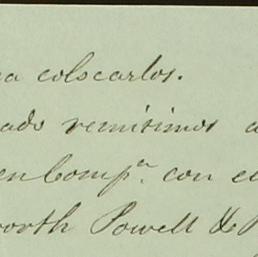 a colocarlos.
ado remitimos a
en Comp.ª con el
worth Powell & P